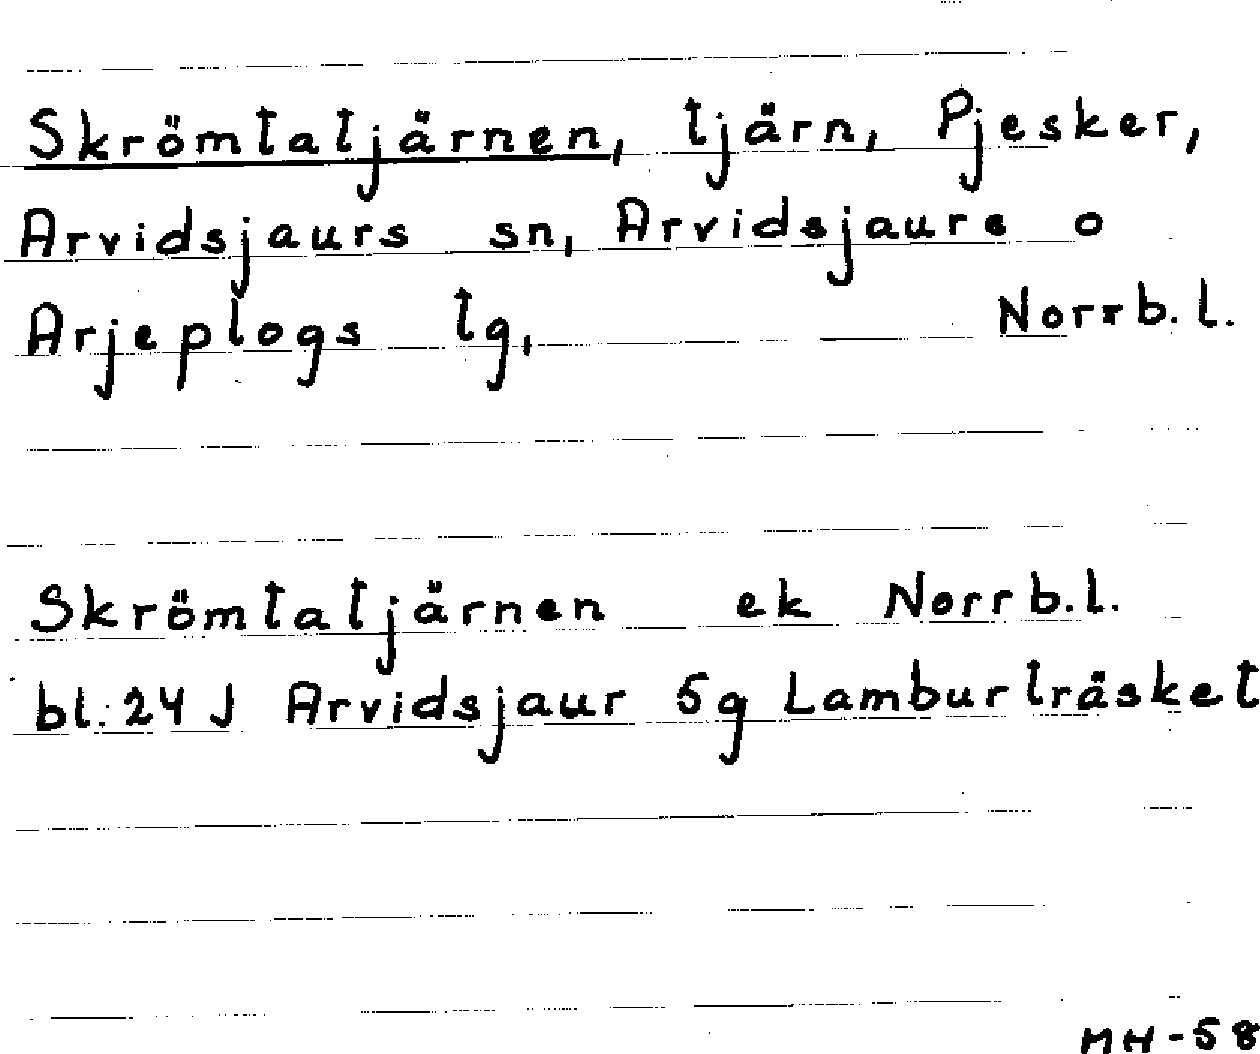 Skrömtatjärnen, tjärn, Pjesker,
Arvidsjaurs sn, Arvidsjaurs o
Arjeplogs tg, Norrb.l.
Skrömtatjärnen ek Norrb.l.
bl. 24 J Arvidsjaur 5g Lamburträsket
MH-58